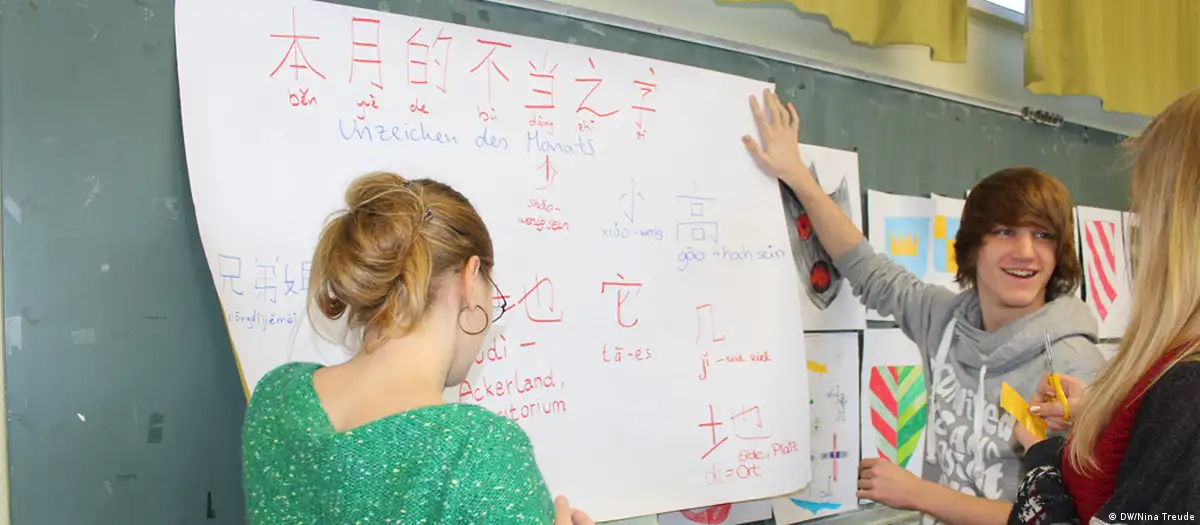 本月的不当之字
běn yuè de bù dāng zhī zì
Unzeichen des Monats
少
shǎo-
wenig sein
小
xiǎo-wenig
高
gāo→hoch sein
兄弟姐
xiōngdìjiěmèi
也
它
dì-
tā-es
几
jǐ-wie viel
Ackerland,
地
Erde, Platz
dì=Ort
© DW/Nina Treude